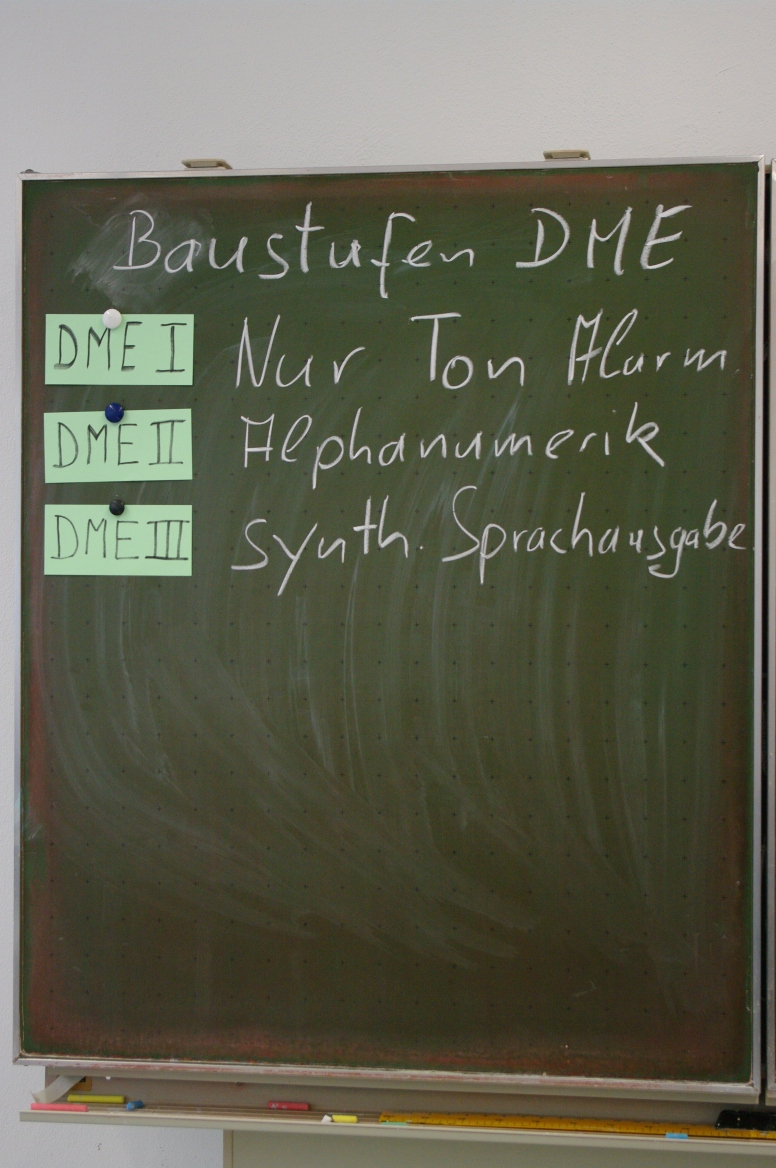 Baustufen DME
DME I Nur Ton Alarm
DME II Alphanumerik
DME III Synth. Sprachausgabe